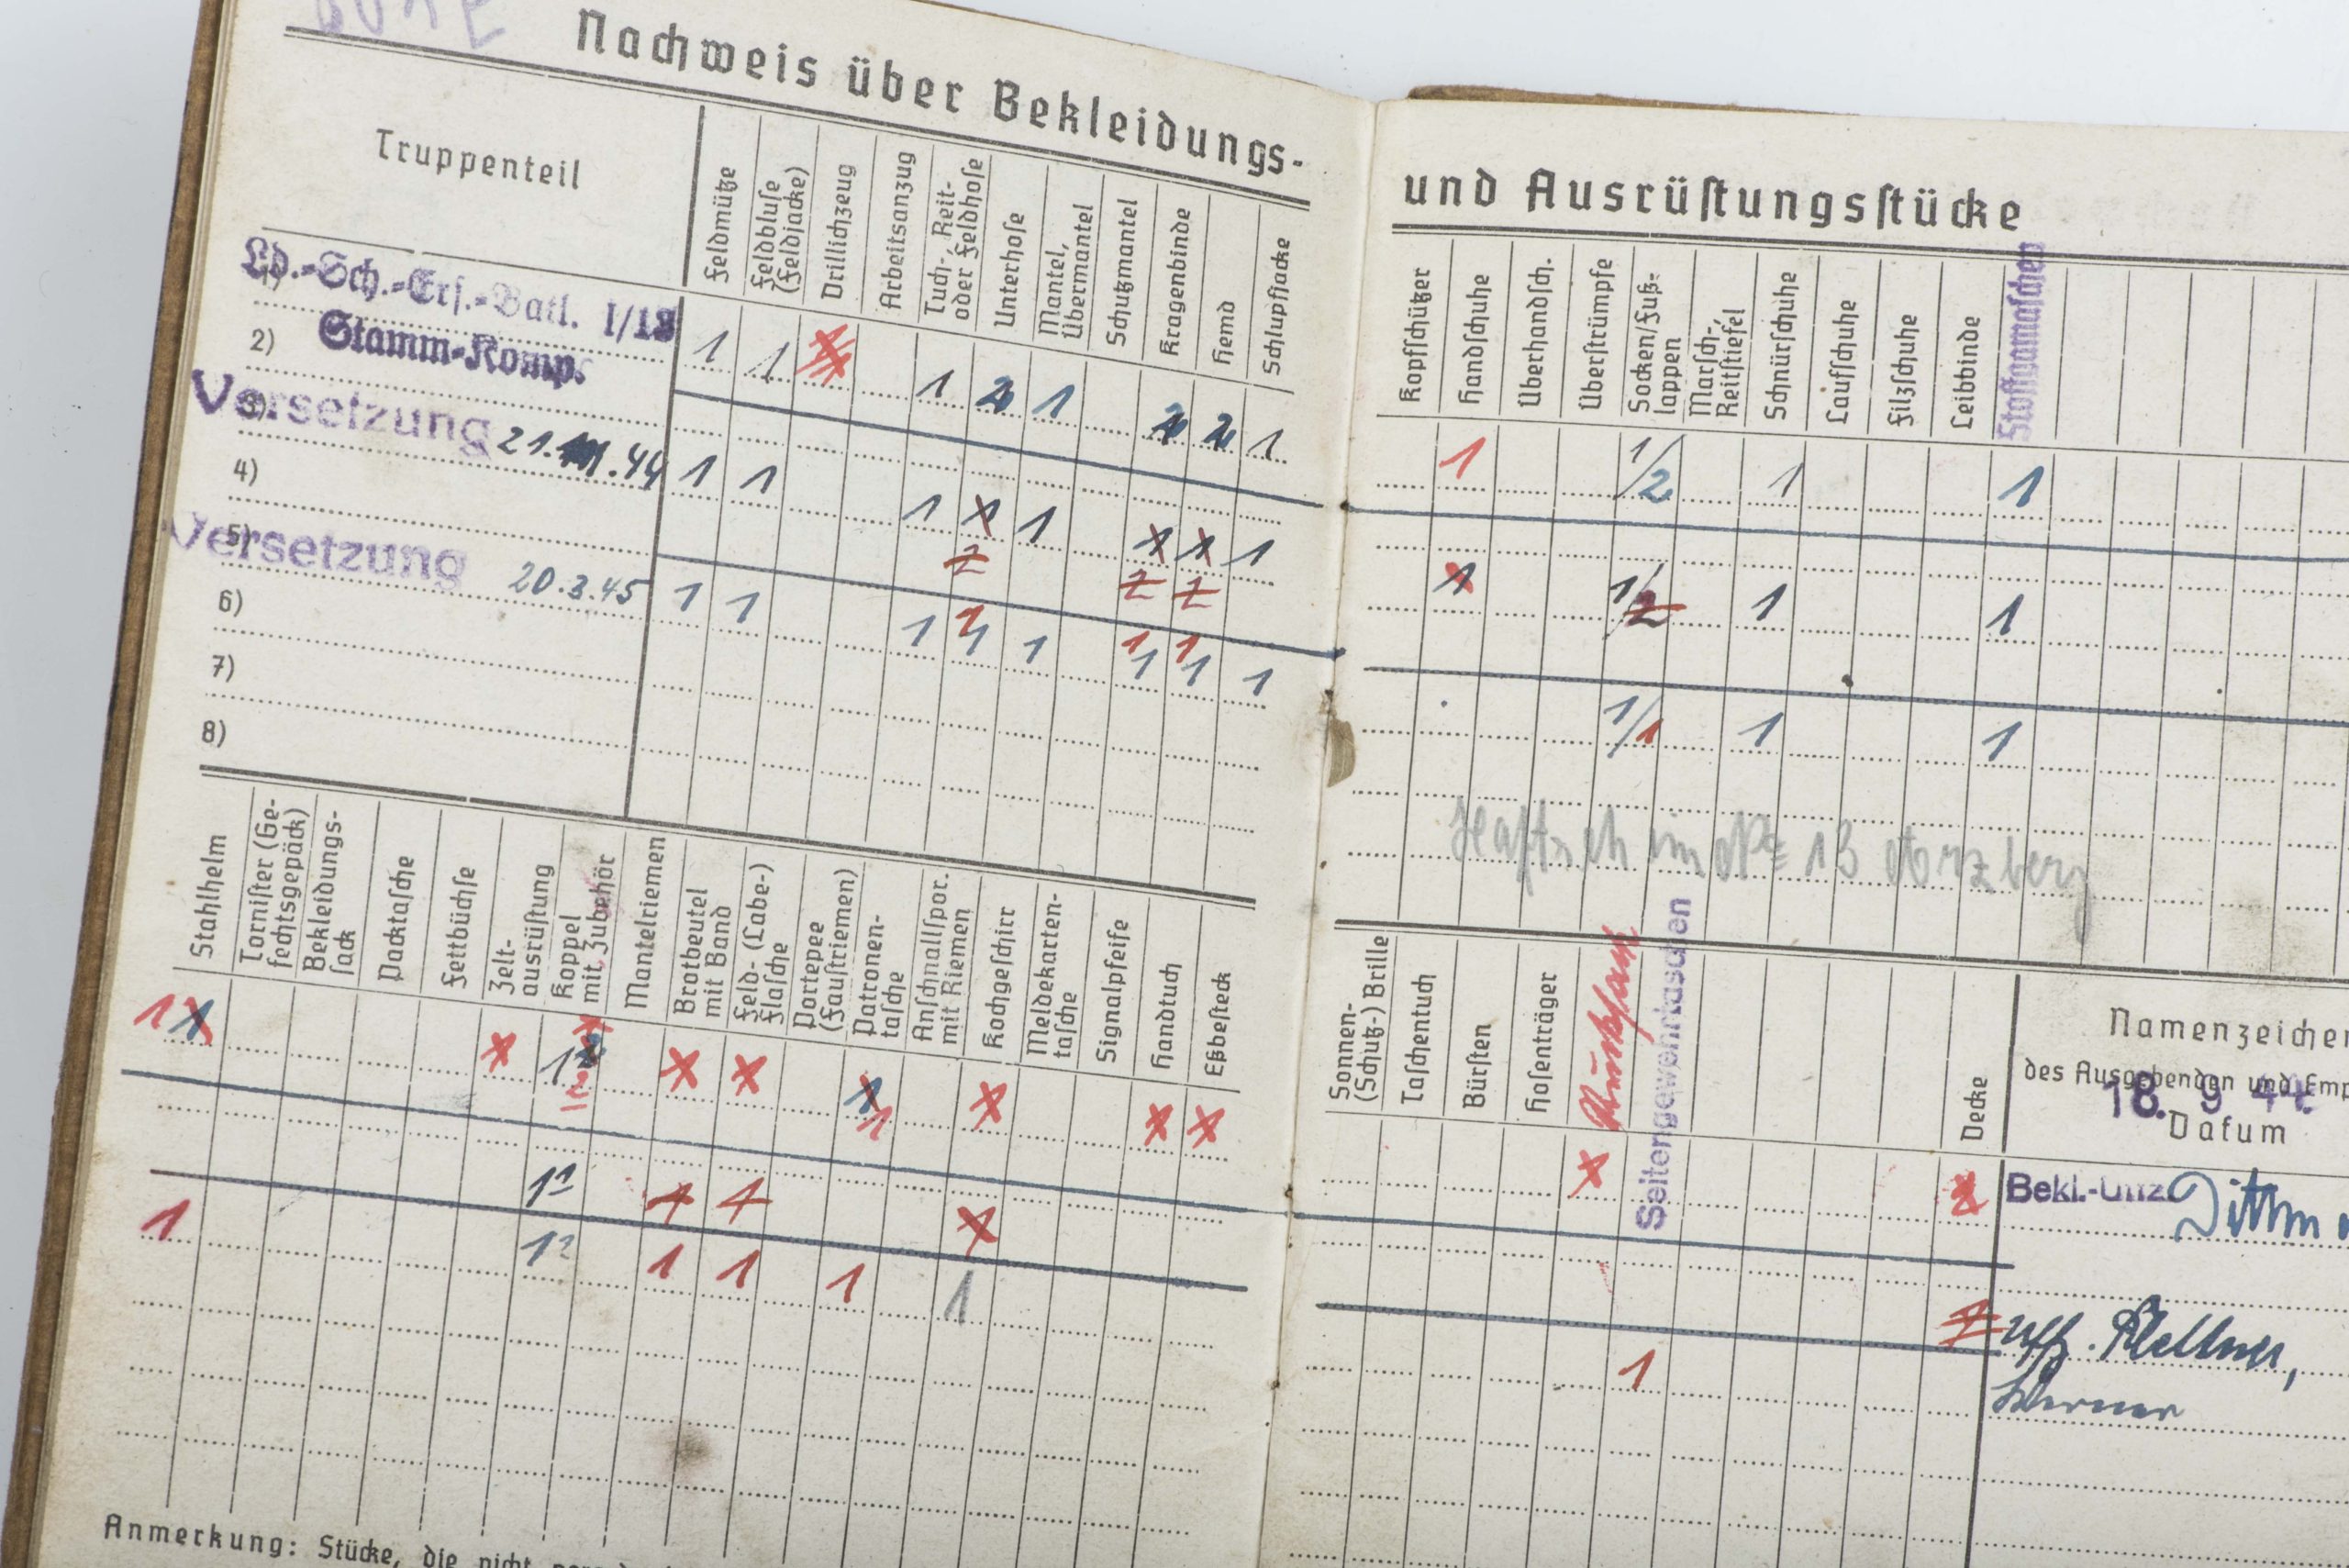 Nachweis über Bekleidungs-
Truppenteil
Feldmütze
Feldbluse
(Feldjacke)
Drillichzeug
Arbeitsanzug
Tuch-, Reit-
oder Feldhose
Unterhose
Mantel,
Übermantel
Schutzmantel
Kragenbinde
Hemd
Schlupfjacke
1)
Ld.-Sch.-Ers.-Batl. I/13
1 1 1 2 1 2 2 1
2) Stamm-Komp.
3) Versetzung 21. .44
1 1 1 1 1 1 1 1
4)
2 2 2
5) Versetzung 20.3.45
1 1 1 1 1 1 1 1
6)
7)
8)
Stahlhelm
Tornister (Ge-
fechtsgepäck)
Bekleidungs-
sack
Packtasche
Fettbüchse
Zelt-
ausrüstung
Koppel
mit Zubehör
Mantelriemen
Brotbeutel
mit Band
Feld- (Labe-)
flasche
Portepee
(Faustriemen)
Patronen-
tasche
Anschnallspor.
mit Riemen
Kochgeschirr
Meldekarten-
tasche
Signalpfeife
Handtuch
Eßbesteck
1 1 1 1 1
1 1 1 1
1 1 1 1 1 1
Anmerkung: Stücke, die nicht
und Ausrüstungsstücke
Kopfschützer
Handschuhe
Überhandsch.
Überstrümpfe
Socken/Fuß-
lappen
Marsch-,
Reitstiefel
Schnürschuhe
Laufschuhe
Filzschuhe
Leibbinde
Stoffgamaschen
1 1/2 1 1
1 1/2 1 1
1/1 1 1
13
Sonnen-
(Schutz-) Brille
Taschentuch
Bürsten
Hosenträger
Rucksack
Seitengewehrtaschen
Decke
Namenzeichen
des Ausgebenden und Emp
18. 9 44.
Datum
Bekl.-Uffz.
Uffz. Kellner,
1